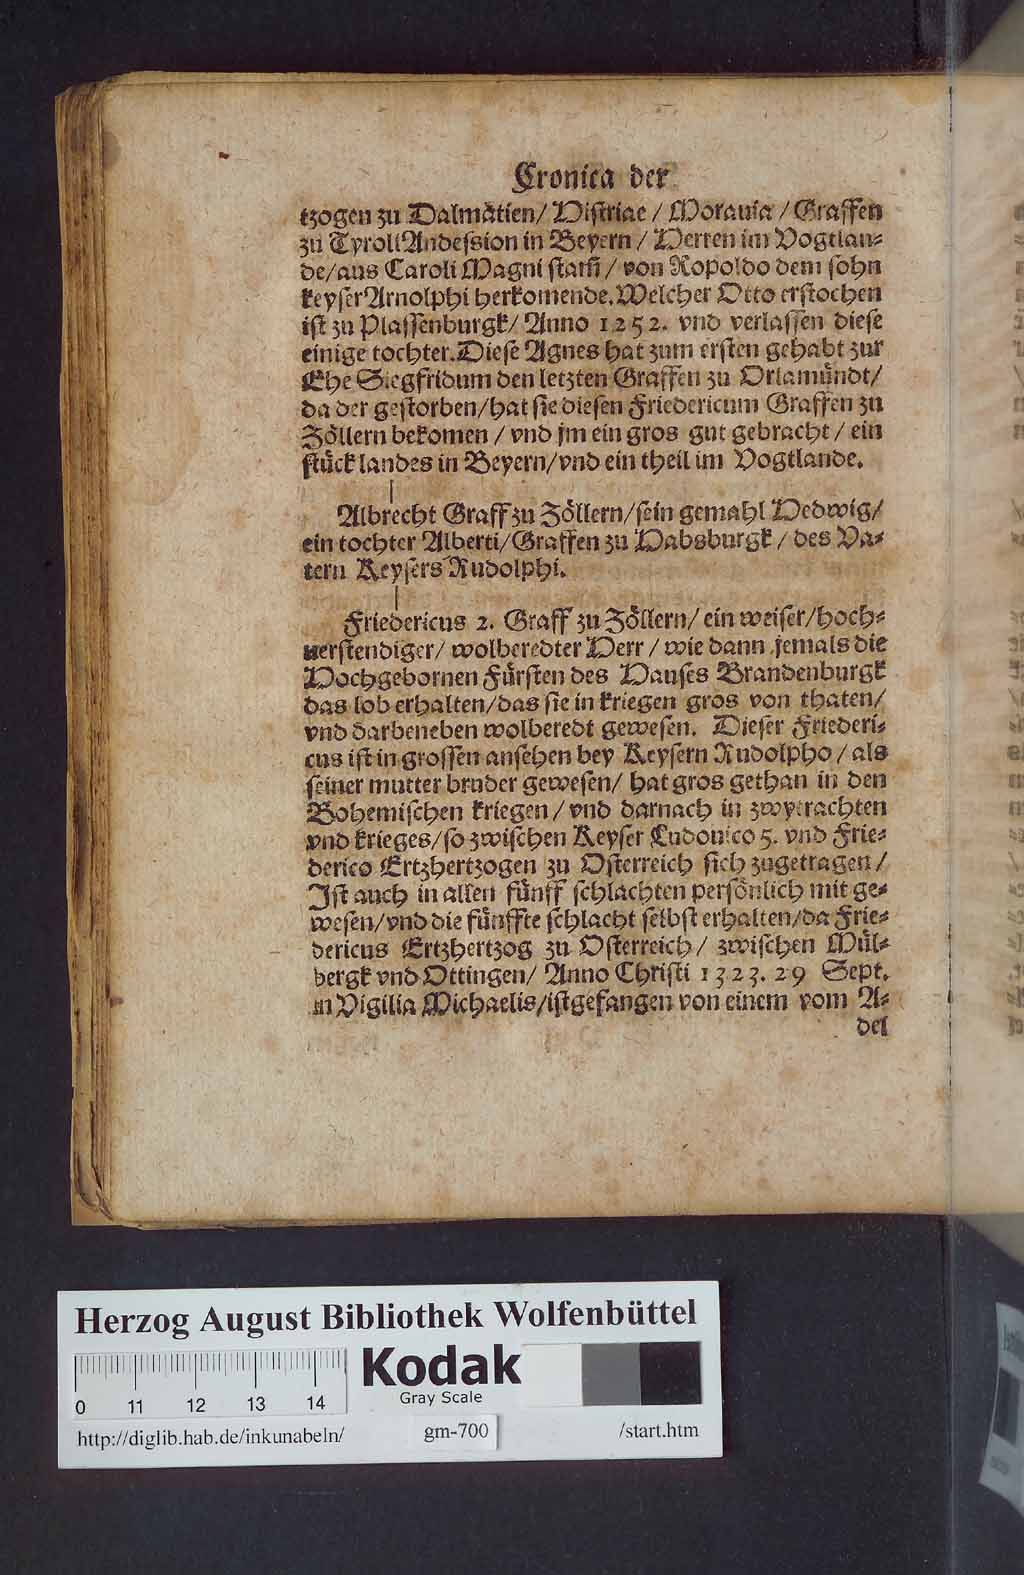 Cronica der
tzogen zu Dalmatien/ Histriae / Morauia / Graffen
zu Tyroll Andession in Beyern / Herren im Vogtlan⸗
de/aus Caroli Magni stam̃/ von Ropoldo dem sohn
keyser Arnolphi herkomende. Welcher Otto erstochen
ist zu Plassenburgk/ Anno 1252. vnd verlassen diese
einige tochter. Diese Agnes hat zum ersten gehabt zur
Ehe Siegfridum den letzten Graffen zu Orlamündt/
da der gestorben/hat sie diesen Friedericum Graffen zu
Zöllern bekomen / vnd jm ein gros gut gebracht / ein
stück landes in Beyern/vnd ein theil im Vogtlande.
Albrecht Graff zu Zöllern/sein gemahl Hedwig/
ein tochter Alberti/Graffen zu Habsburgk / des Va⸗
tern Keysers Rudolphi.
Friedericus 2. Graff zu Zöllern/ ein weiser/hoch⸗
uerstendiger/ wolberedter Herr / wie dann jemals die
Hochgebornen Fürsten des Hauses Brandenburgk
das lob erhalten/das sie in kriegen gros von thaten/
vnd darbeneben wolberedt gewesen. Dieser Friederi⸗
cus ist in grossen ansehen bey Keysern Rudolpho / als
seiner mutter bruder gewesen/ hat gros gethan in den
Bohemischen kriegen / vnd darnach in zwytrachten
vnd krieges/so zwischen Keyser Ludouico 5. vnd Frie⸗
derico Ertzhertzogen zu Osterreich sich zugetragen /
Ist auch in allen fünff schlachten persönlich mit ge⸗
wesen/vnd die fünffte schlacht selbst erhalten/da Frie⸗
dericus Ertzhertzog zu Osterreich / zwischen Mül⸗
bergk vnd Ottingen/ Anno Christi 1323. 29 Sept.
in Vigilia Michaelis/ist gefangen von einem vom A⸗
del
Herzog August Bibliothek Wolfenbüttel
Kodak
Gray Scale
0 11 12 13 14
http://diglib.hab.de/inkunabeln/ gm-700 /start.htm